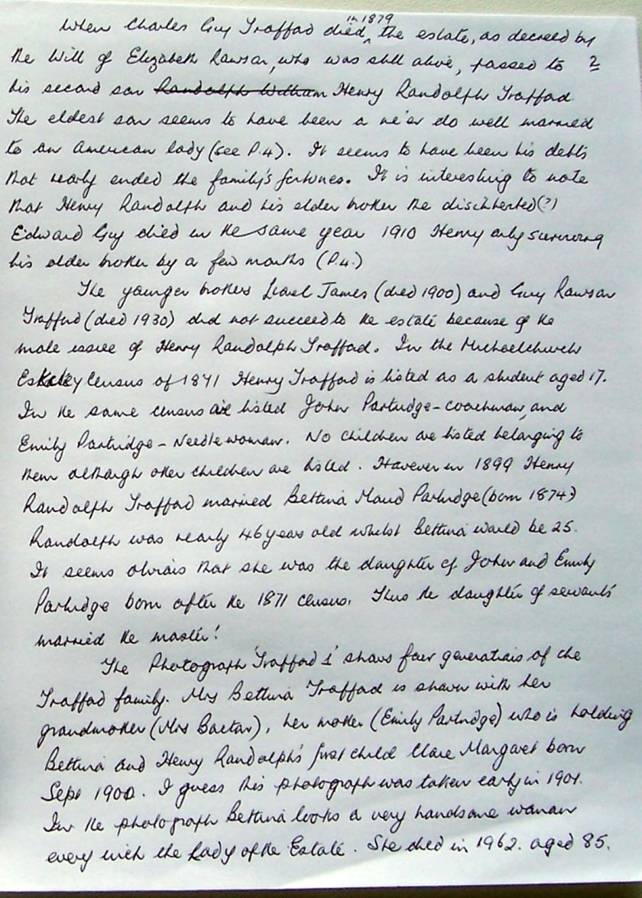 When Charles Guy Trafford died in 1879, the estate, as decreed by
the Will of Elizabeth Rawson, who was still alive, passed to 2
his second son Randolph William Henry Randolph Trafford
The eldest son seems to have been a ne'er do well married
to an American lady (see P.4). It seems to have been his debts
that nearly ended the family's fortunes. It is interesting to note
that Henry Randolph and his elder brother the disinherited(?)
Edward Guy died in the same year 1910 Henry only surviving
his older brother by a few months (P.4.)
The younger brothers Lionel James (died 1900) and Guy Rawson
Trafford (died 1930) did not succeed to the estate because of the
male issue of Henry Randolph Trafford. In the Michaelchurch
Eskley Census of 1871 Henry Trafford is listed as a student aged 17.
In the same census are listed John Partridge - coachman, and
Emily Partridge - Needlewoman. No children are listed belonging to
them although other children are listed. However in 1899 Henry
Randolph Trafford married Bettina Maud Partridge (born 1874)
Randolph was nearly 46 years old whilst Bettina would be 25.
It seems obvious that she was the daughter of John and Emily
Partridge born after the 1871 census. Thus the daughter of servants
married the master!
The Photograph 'Trafford 1' shows four generations of the
Trafford family. Mrs Bettina Trafford is shown with her
grandmother (Mrs Baxter), her mother (Emily Partridge) who is holding
Bettina and Henry Randolph's first child Clare Margaret born
Sept 1900. I guess this photograph was taken early in 1901.
In the photograph Bettina looks a very handsome woman
every inch the Lady of the Estate. She died in 1962. aged 85.